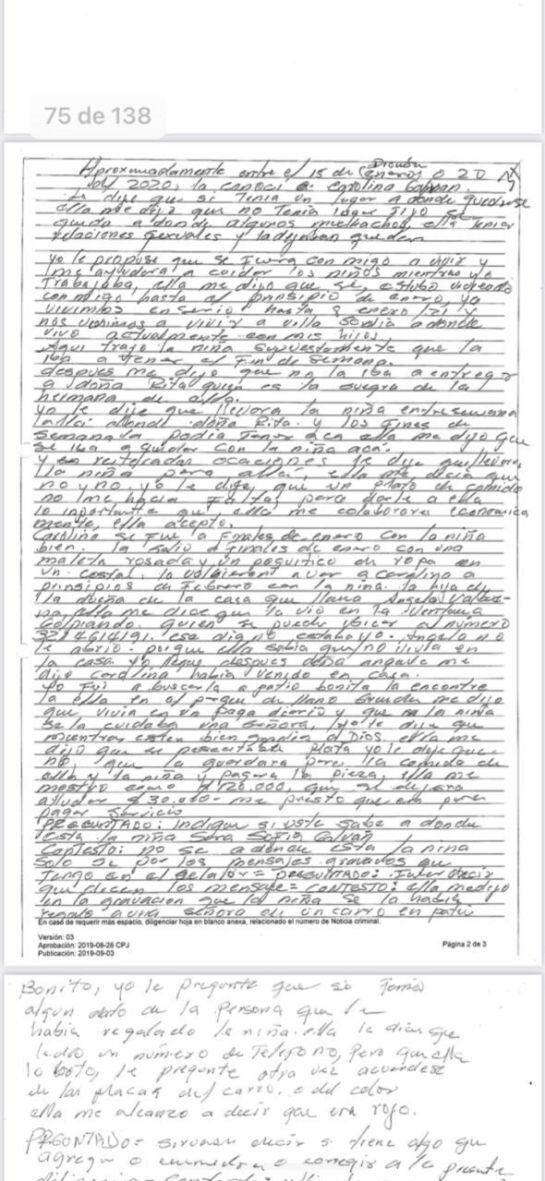 75 de 138
Aproximadamente entre el 15 de enero o 20
Diciembre
del 2020, la conoci a Carolina Galvan.
le dije que si Tenia un lugar a donde quedarse
ella me dijo que no Tenia lugar fijo se
queda a donde algunos muchachos, ella Tenia
relaciones sexuales y la dejaban quedar
yo le propuse que se fuera con migo a vivir y
me ayudara a cuidar los niños mientras yo
Trabajaba, ella me dijo que si, estubo viviendo
con migo hasta el principio de enero, ya
vivimos en serio hasta 8 enero /21 y
nos venimos a vivir a villa Sonia a donde
vivo actualmente con mis hijos.
Aqui trajo la niña supuestamente que la
iba a tener el fin de semana.
despues me dijo que no la iba a entregar
a doña Rita quien es la suegra de la
hermana de ella.
yo le dije que llevara la niña entre semana
donde doña Rita. y los fines de
semana la podia Tener aca ella me dijo que
se iba a quedar con la niña acá.
y en reiteradas ocaciones le dije que llevara
la niña para alla, ella me decia que
no y no, yo le dije, que un plato de comida
no me hacia falta, para darle a ella
lo importante que ella me colaborara economica
mente, ella acepto.
Carolina se fue a finales de enero con la niña
bien. la salio a finales de enero con una
maleta rosada y un poquitico de ropa en
un costal. la volbieron a ver a Carolina a
principios de Febrero con la niña. la hija de
la dueña de la casa que llama Angela
ella me dice que la vio en la ventana
Golpiando. quien se puede ubicar al número
3214614191. ese dia no estaba yo. Angela no
le abrio. porque ella sabia que no vivia en
la casa. yo llegue despues doña angela me
dijo Carolina habia venido en casa.
yo fui a buscarla a patio bonito la encontre
a ella en el parque de llano Grande me dijo
que vivia en un paga diario y que la niña
se la cuidaba una señora, yo le dije que
mientras esten bien gracias a Dios. ella me
dijo que si necesitaba plata yo le dije que
no, que la guardara para la comida de
ella y la niña y pagara la pieza, ella me
mostro como $ 120.000, que si dejara
ayudar $ 30.000- me presto que era para
pagar servicio
PREGUNTADO: Indique si usted sabe a donde
esta la niña Sara Sofia Galvan
Contesto: no se a donde esta la niña
Solo se por los mensajes gravados que
Tengo en el celular = PREGUNTADO: decir
que dicen los mensaje = CONTESTO: ella me dijo
en la gravacion que la niña se la habia
regalo a una señora de un carro en patio
En caso de requerir más espacio, diligenciar hoja en blanco anexa, relacionado el número de Noticia criminal.
Versión: 03
Aprobación: 2019-08-26 CPJ
Publicación: 2019-09-03
Página 2 de 3
Bonito, yo le pregunte que si Tomó
algun dato de la persona que le
habia regalado la niña. ella le dieron
un número de Telefono, Pero que ella
lo boto, le pregunte otra vez acuerdese
de las placas del carro, o del color
ella me alcanzo a decir que era rojo.
PREGUNTADO= sirvase decir si tiene algo que
agregar o enmendar o corregir a la presente